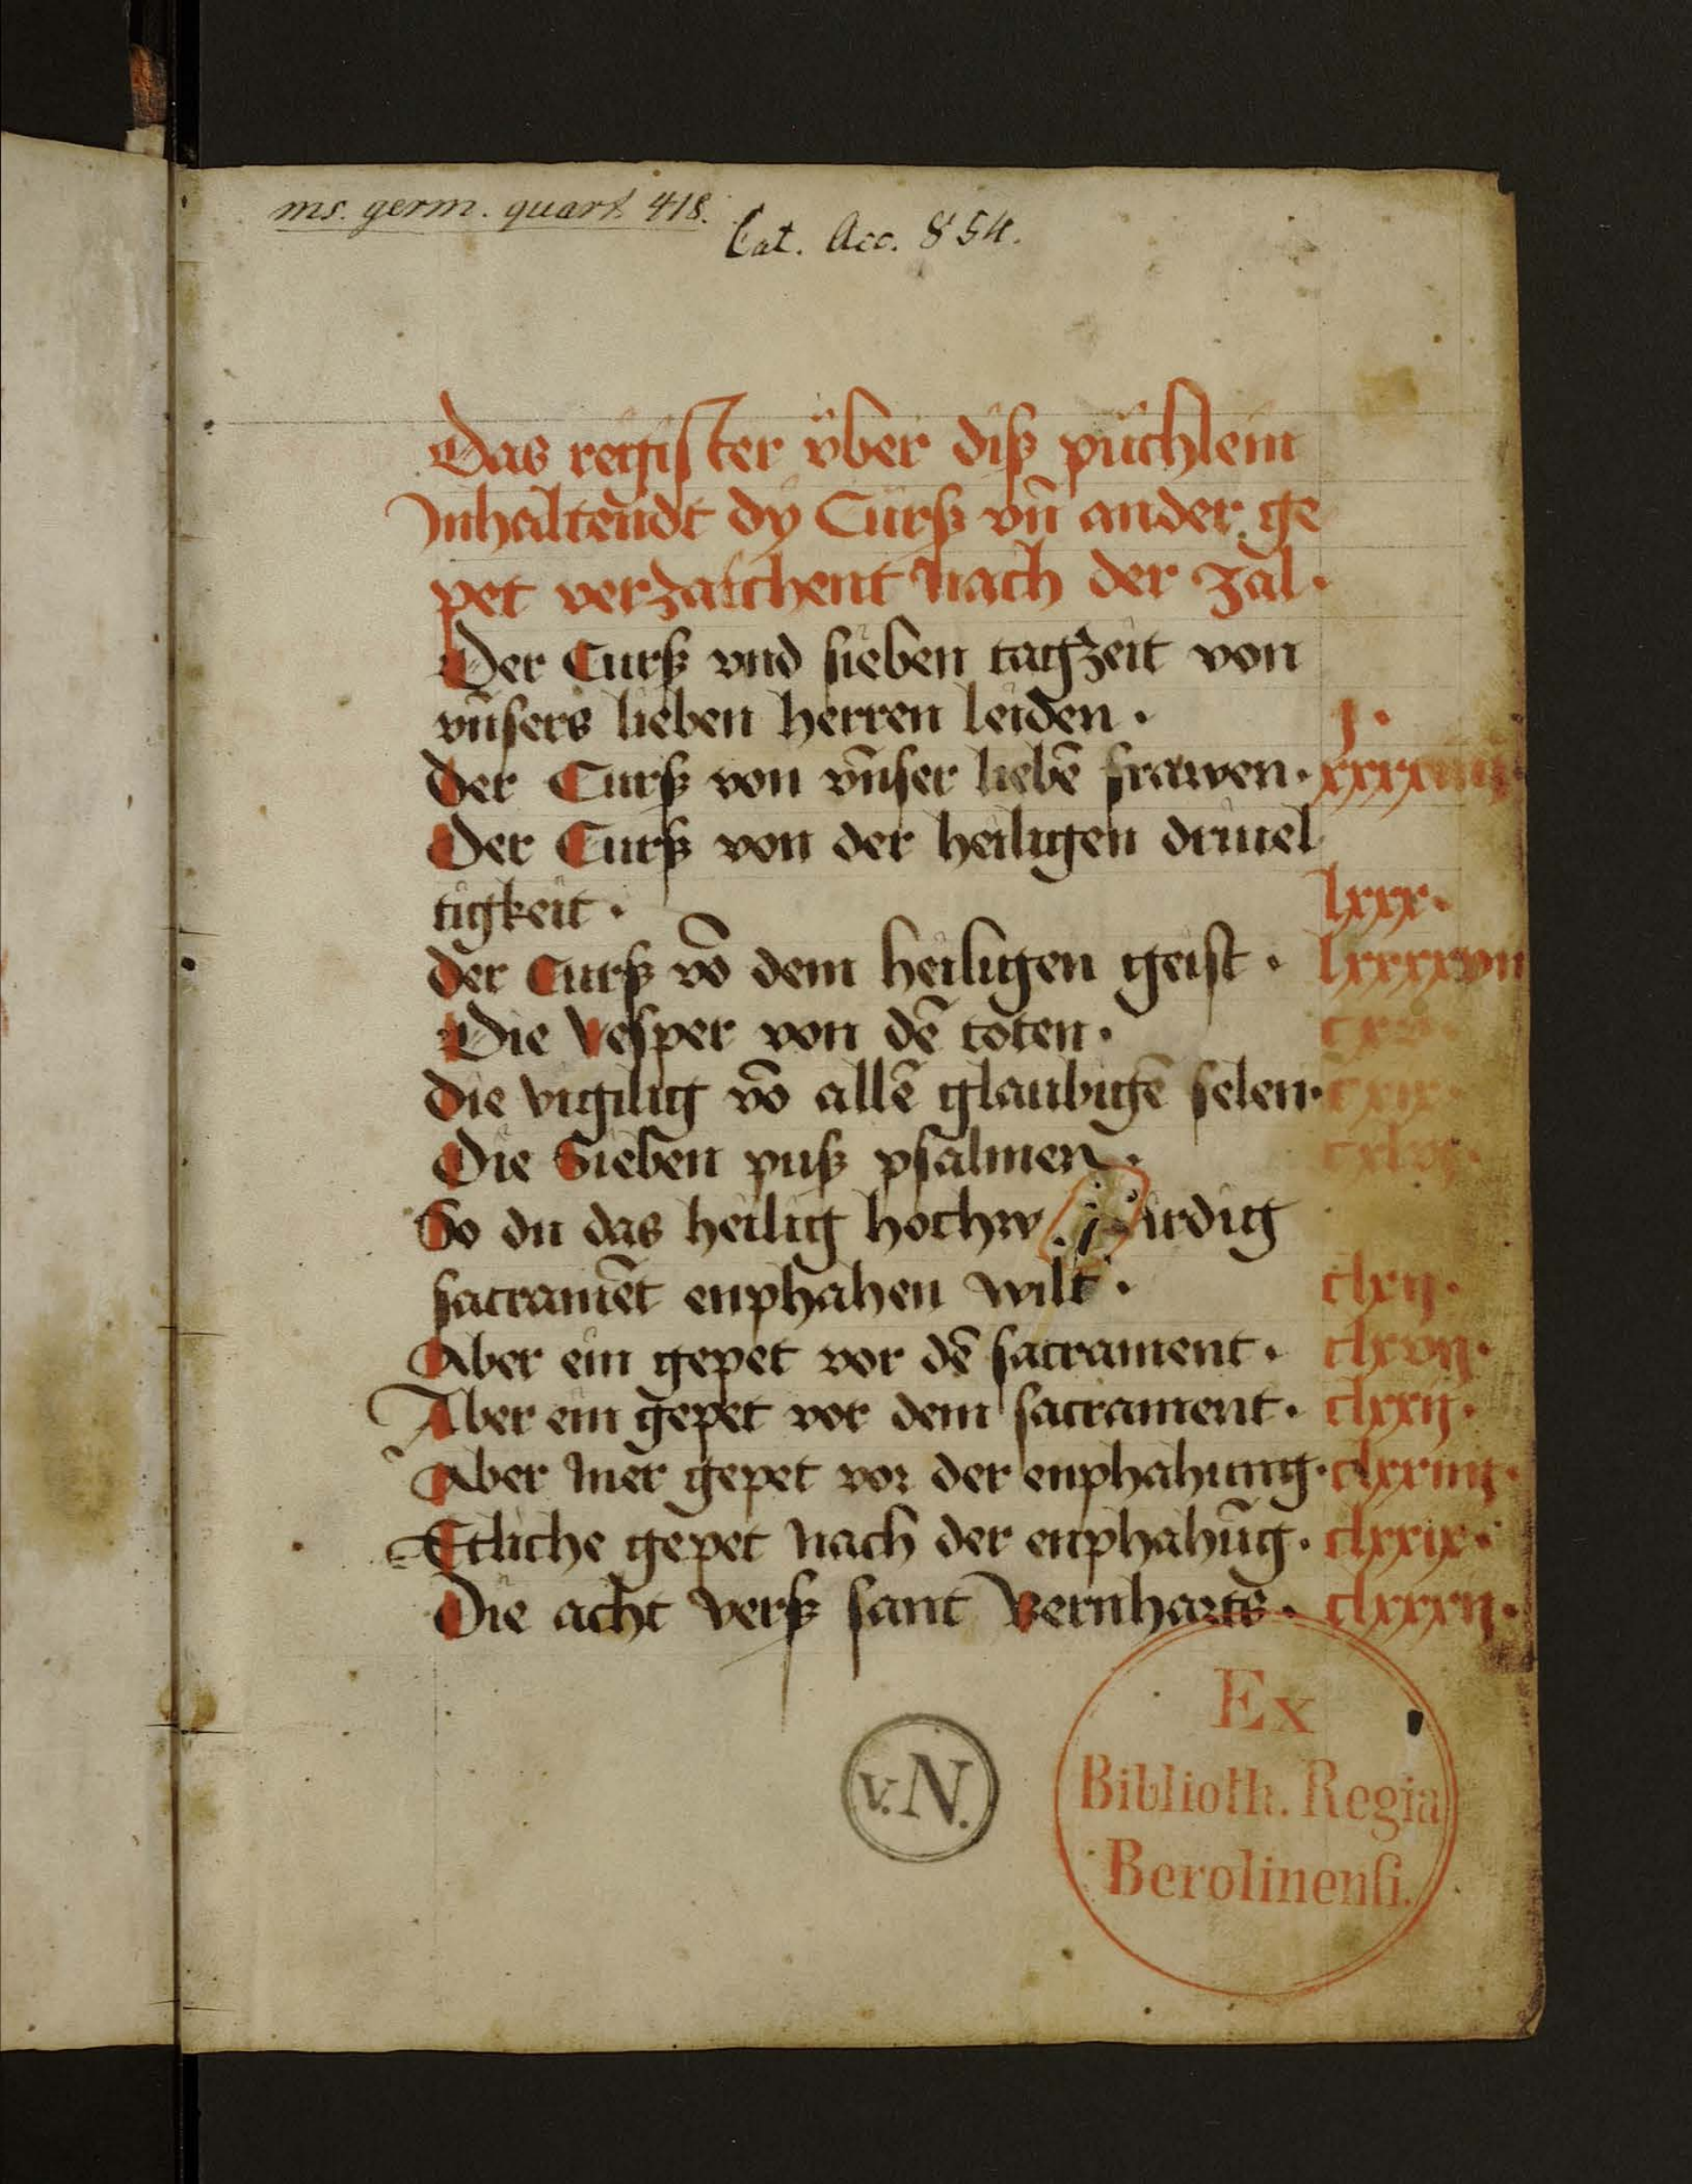 ms. germ. quart 418.
Cat. Acc. 854.
Das register vber diß püchlein
Inhaltendt dy Curß vn̄ ander ge
pet verzaichent nach der zal.
Der Curß vnd sieben tagzeit von
vn̄sers lieben herren leiden. j.
Der Curß von vn̄ser liebē frawen. xxxxiiij
Der Curß von der heiligen driuel
tigkeit. lxxx.
Der Curß vō dem heiligen geist. lxxxxvii
Die Vesper von dē toten. cxv.
Die vigilig vō allē glaubigē selen. cxix.
Die Sieben puß psalmen. cxlvj.
So du das heilig hochw irdig
sacramēt enphahen wilt. clxij.
Aber ein gepet vor dē sacrament. clxvij.
Aber ein gepet vor dem sacrament. clxxij.
Aber mer gepet vor der enphahung. clxxiiij.
Etliche gepet nach der enphahūg. clxxix.
Die acht verß sant Bernharts. clxxxij.
Ex
v.N. Biblioth. Regia
Berolinenſi.